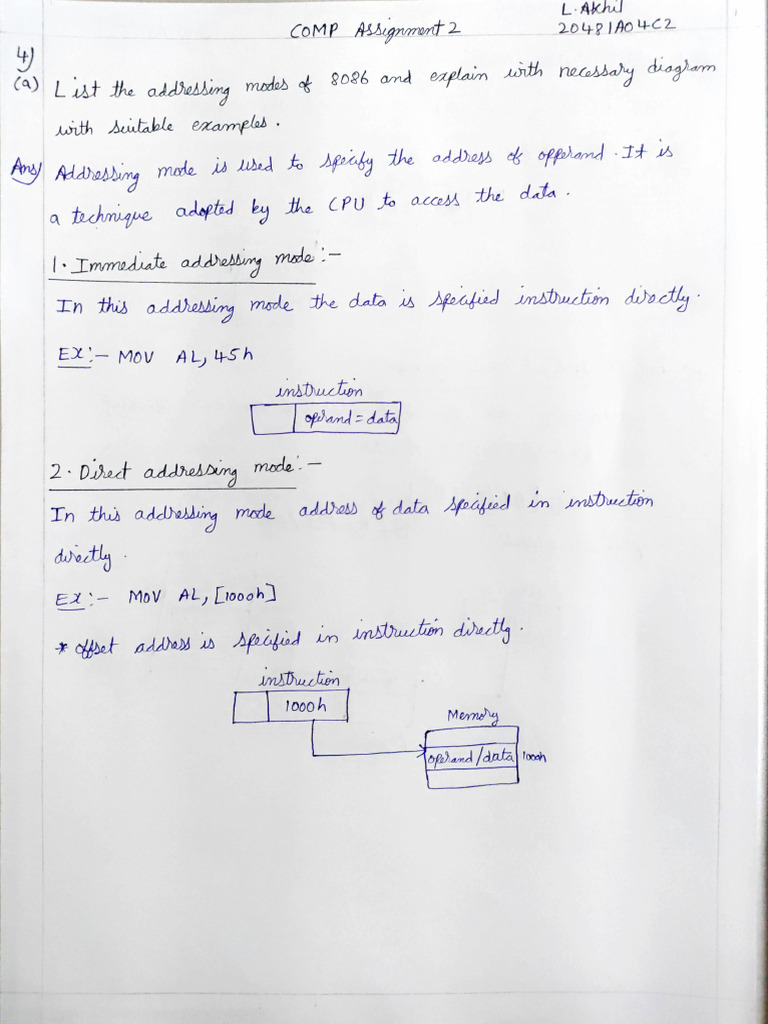 L. Akhil
COMP Assignment 2
20481A04C2
4)
(a) List the addressing modes of 8086 and explain with necessary diagram
with suitable examples.
Ans) Addressing mode is used to specify the address of opperand. It is
a technique adopted by the CPU to access the data.
1. Immediate addressing mode :-
In this addressing mode the data is specified instruction directly.
Ex :- MOV AL, 45h
instruction
operand = data
2. Direct addressing mode :-
In this addressing mode address of data specified in instruction
directly.
Ex :- MOV AL, [1000h]
* offset address is specified in instruction directly.
instruction
1000h
Memory
operand/data 1000h